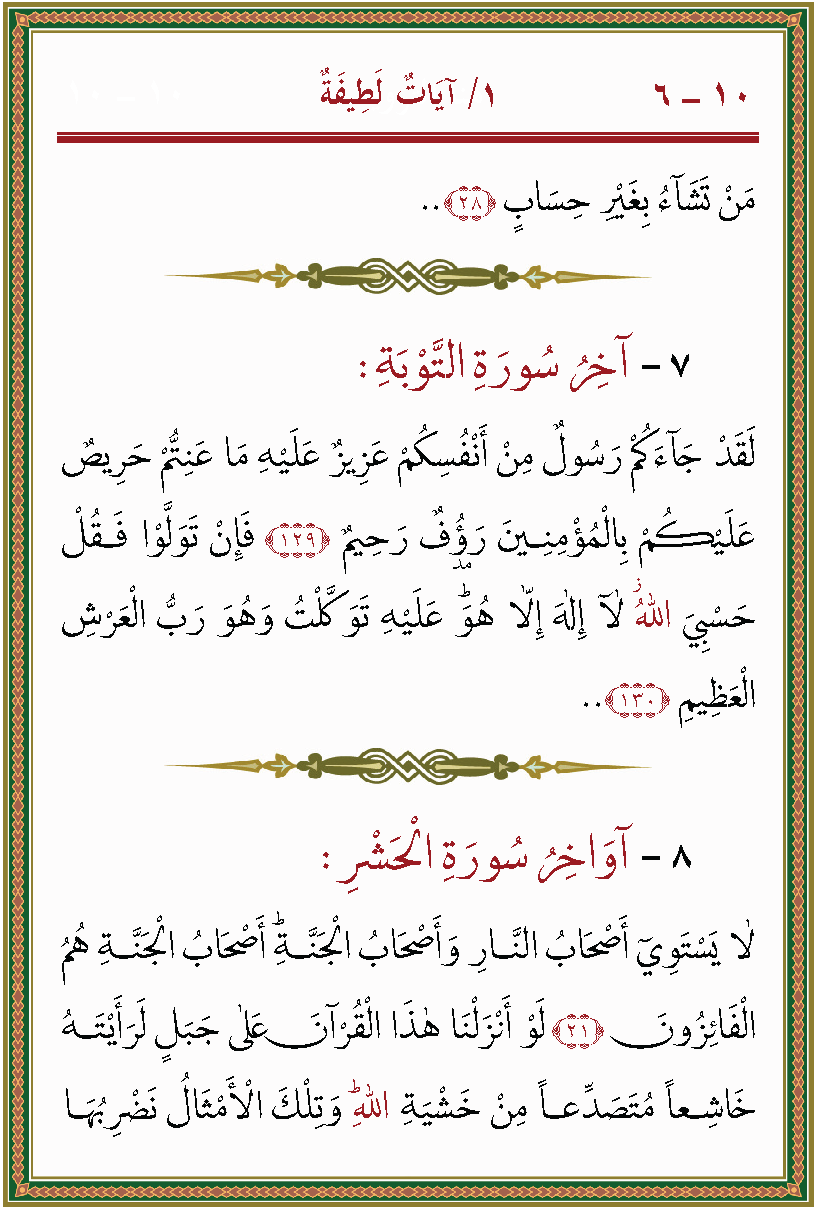 ١٠ – ٦ ١/ آيَاتٌ لَطِيفَةٌ
مَنْ تَشَآءُ بِغَيْرِ حِسَابٍ ﴿٢٨﴾..
٧ – آخِرُ سُورَةِ التَّوْبَةِ :
لَقَدْ جَآءَكُمْ رَسُولٌ مِنْ أَنْفُسِكُمْ عَزِيزٌ عَلَيْهِ مَا عَنِتُّمْ حَرِيصٌ
عَلَيْكُمْ بِالْمُؤْمِنِينَ رَؤُفٌ رَحِيمٌ ﴿١٢٩﴾ فَإِنْ تَوَلَّوْا فَقُلْ
حَسْبِيَ اللّٰهُ ۘ لَآ إِلٰهَ إِلَّا هُوَ ؕ عَلَيْهِ تَوَكَّلْتُ وَهُوَ رَبُّ الْعَرْشِ
الْعَظِيمِ ﴿١٣٠﴾..
٨ – آوَاخِرُ سُورَةِ الْحَشْرِ :
لَا يَسْتَوِيٓ أَصْحَابُ النَّارِ وَأَصْحَابُ الْجَنَّةِ ؕ أَصْحَابُ الْجَنَّةِ هُمُ
الْفَائِزُونَ ﴿٢١﴾ لَوْ أَنْزَلْنَا هٰذَا الْقُرْآنَ عَلٰى جَبَلٍ لَرَأَيْتَهُ
خَاشِعاً مُتَصَدِّعاً مِنْ خَشْيَةِ اللّٰهِ ؕ وَتِلْكَ الْأَمْثَالُ نَضْرِبُهَا